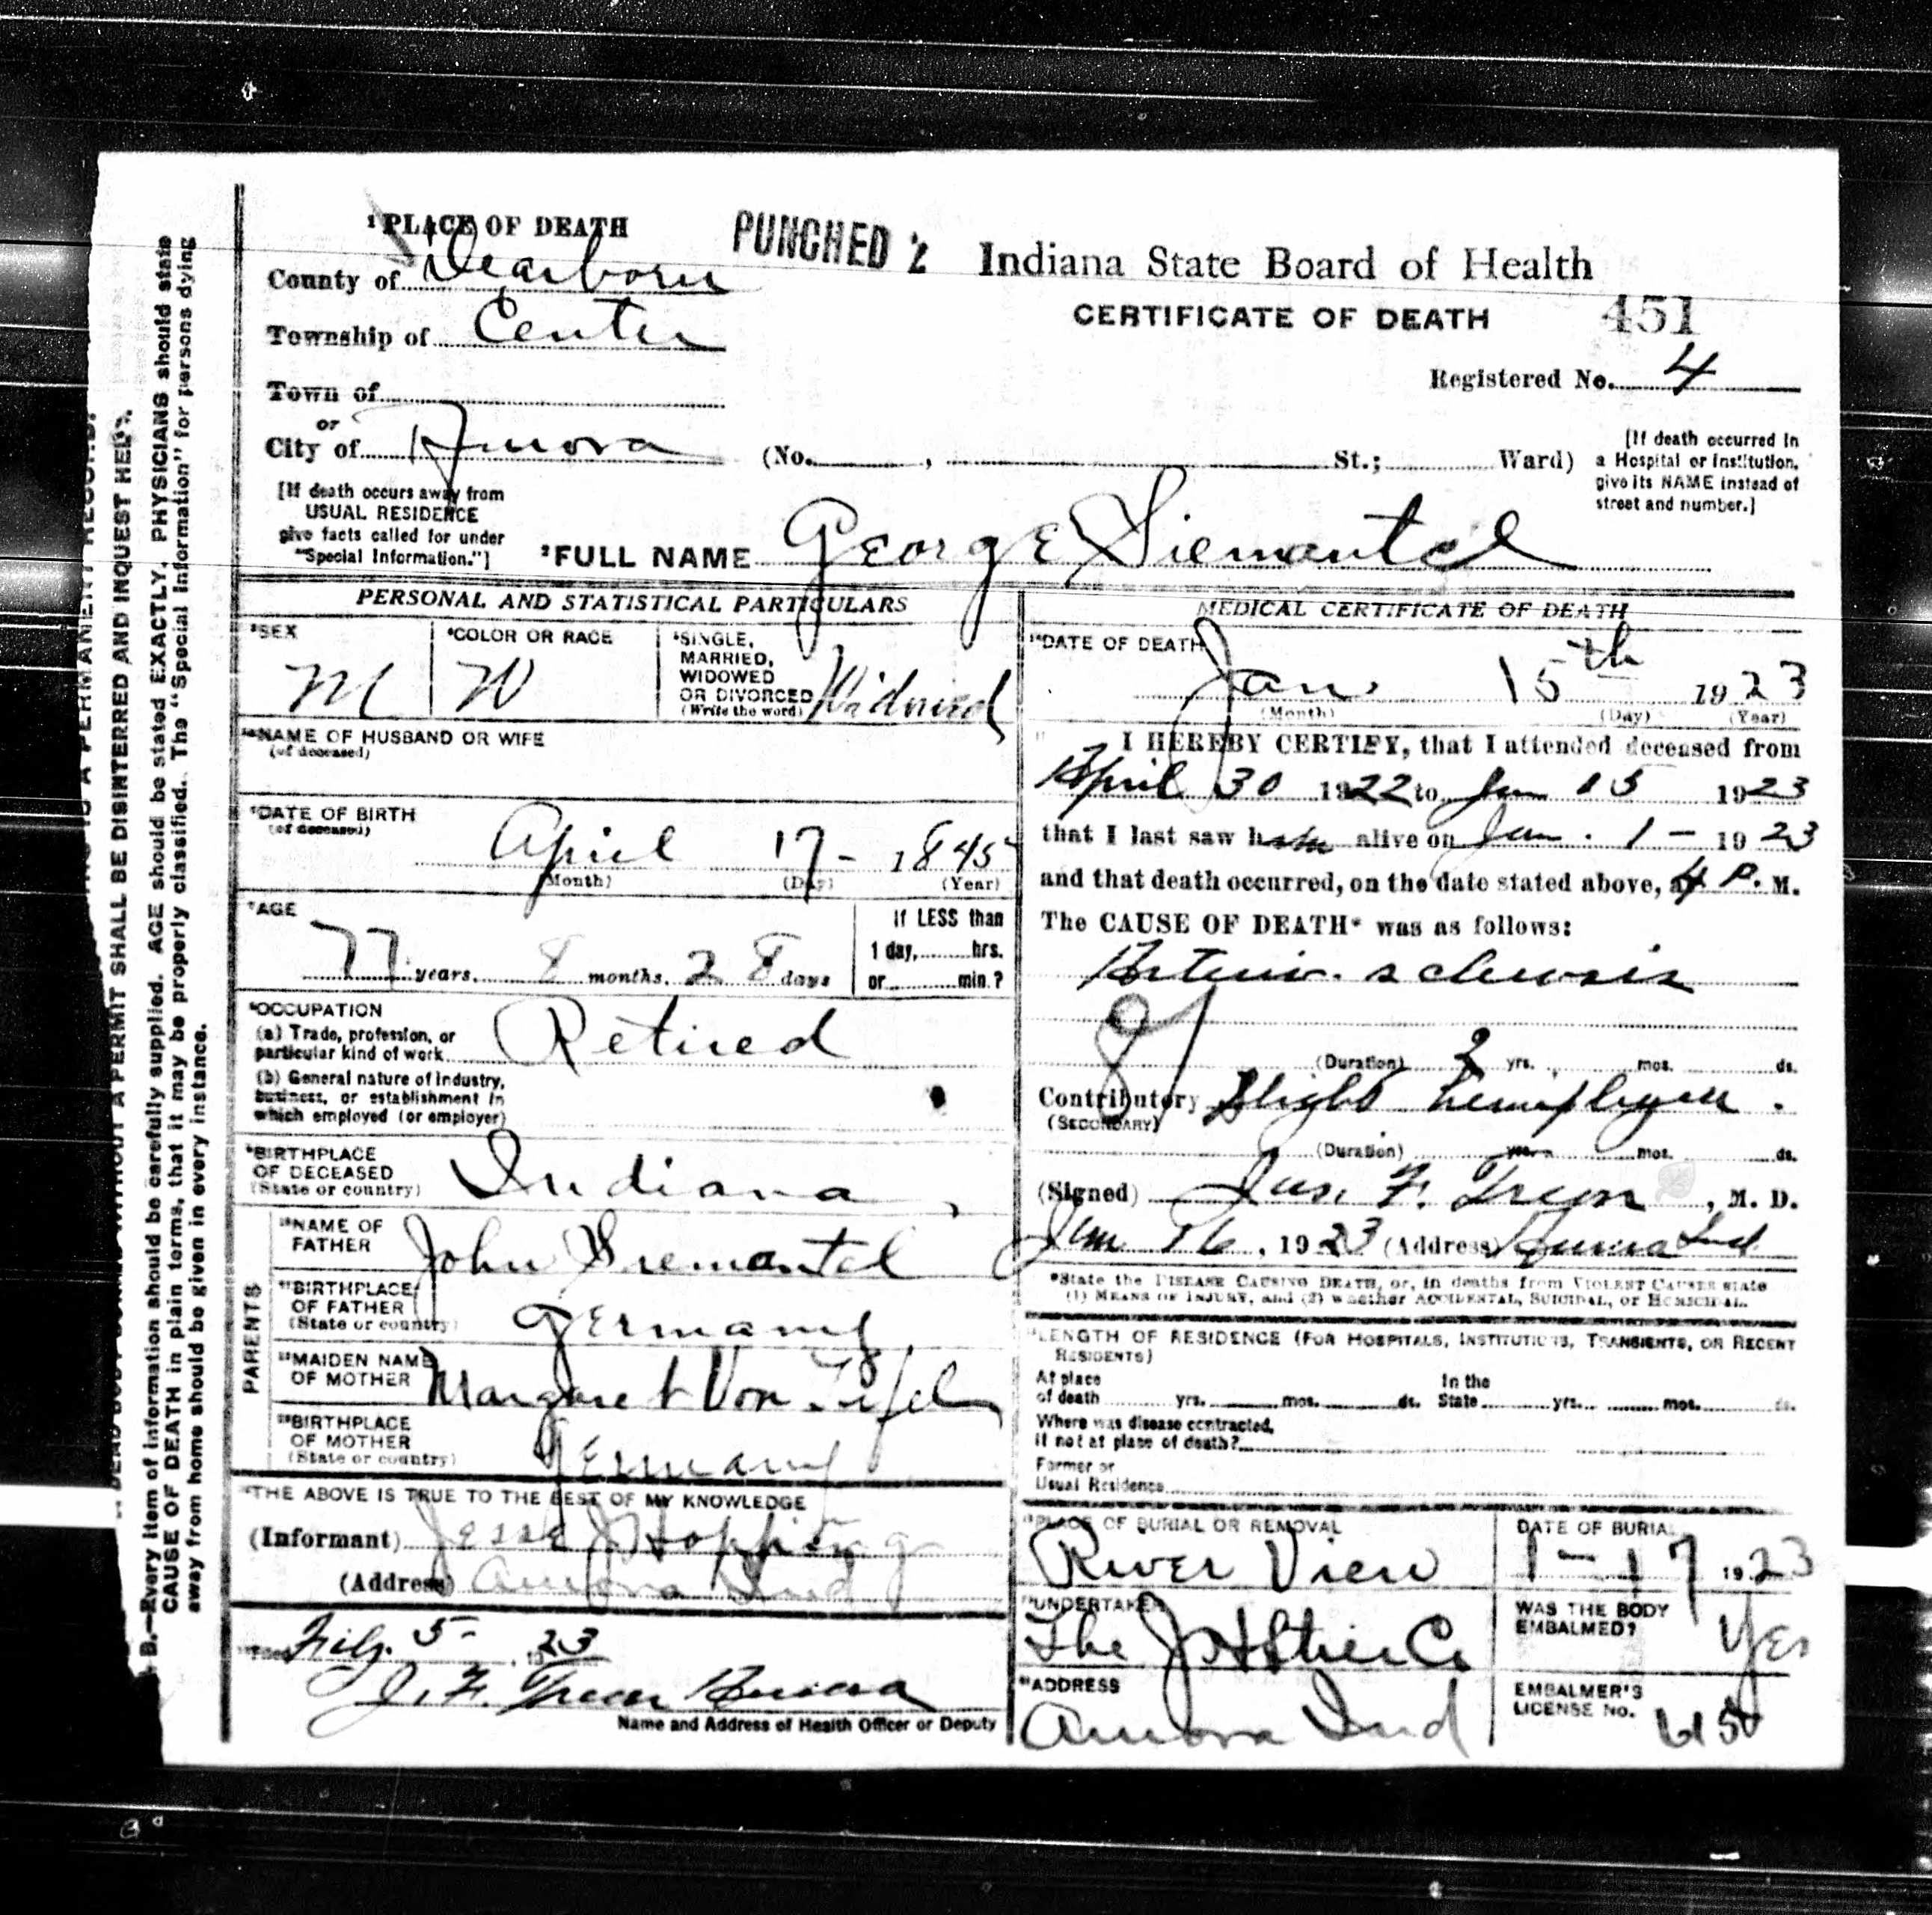 ¹PLACE OF DEATH
PUNCHED 2
Indiana State Board of Health
CERTIFICATE OF DEATH
451
County of Dearborn
Township of Center
Registered No. 4
Town of
or
City of Aurora (No. , St.; Ward)
[If death occurred in a Hospital or Institution, give its NAME instead of street and number.]
[If death occurs away from USUAL RESIDENCE give facts called for under "Special Information."]
²FULL NAME George Siemantel
PERSONAL AND STATISTICAL PARTICULARS
SEX M
COLOR OR RACE W
SINGLE, MARRIED, WIDOWED OR DIVORCED (Write the word) Widowed
NAME OF HUSBAND OR WIFE
(of deceased)
DATE OF BIRTH
(of deceased)
April 17 - 1845
(Month) (Day) (Year)
AGE
77 years, 8 months, 28 days
If LESS than
1 day, hrs.
or min.?
OCCUPATION
(a) Trade, profession, or
particular kind of work Retired
(b) General nature of industry,
business, or establishment in
which employed (or employer)
BIRTHPLACE
OF DECEASED
(State or country) Indiana
PARENTS
NAME OF
FATHER John Siemantel
BIRTHPLACE
OF FATHER
(State or country) Germany
MAIDEN NAME
OF MOTHER Margaret Von
BIRTHPLACE
OF MOTHER
(State or country) Germany
THE ABOVE IS TRUE TO THE BEST OF MY KNOWLEDGE
(Informant) Jesse J Hopping
(Address) Aurora Ind
Filed Feb. 5- , 1923
J. F. Treon Aurora
Name and Address of Health Officer or Deputy
MEDICAL CERTIFICATE OF DEATH
DATE OF DEATH
Jan. 15th 1923
(Month) (Day) (Year)
I HEREBY CERTIFY, that I attended deceased from
April 30 1922 to Jan 15 1923
that I last saw him alive on Jan. 1 - 1923
and that death occurred, on the date stated above, at 4 P. M.
The CAUSE OF DEATH* was as follows:
Arterio. sclerosis
(Duration) 2 yrs. mos. ds.
Contributory Slight hemiplegia.
(SECONDARY)
(Duration) yrs. mos. ds.
(Signed) Jas. F. Treon, M. D.
Jan 16, 1923 (Address) Aurora Ind
*State the DISEASE CAUSING DEATH, or, in deaths from VIOLENT CAUSES state
(1) MEANS OF INJURY, and (2) whether ACCIDENTAL, SUICIDAL, or HOMICIDAL.
LENGTH OF RESIDENCE (FOR HOSPITALS, INSTITUTIONS, TRANSIENTS, OR RECENT
RESIDENTS)
At place
of death yrs. mos. ds.
In the
State yrs. mos. ds.
Where was disease contracted,
if not at place of death?
Former or
Usual Residence
PLACE OF BURIAL OR REMOVAL
River View
DATE OF BURIAL
1 - 17 1923
UNDERTAKER
The J H Stier Co
WAS THE BODY
EMBALMED? Yes
ADDRESS
Aurora Ind
EMBALMER'S
LICENSE NO.
DEAD BODY BURIED WITHOUT A PERMIT SHALL BE DISINTERRED AND INQUEST HELD.
B.—Every item of information should be carefully supplied. AGE should be stated EXACTLY. PHYSICIANS should state
CAUSE OF DEATH in plain terms, that it may be properly classified. The "Special Information" for persons dying
away from home should be given in every instance.